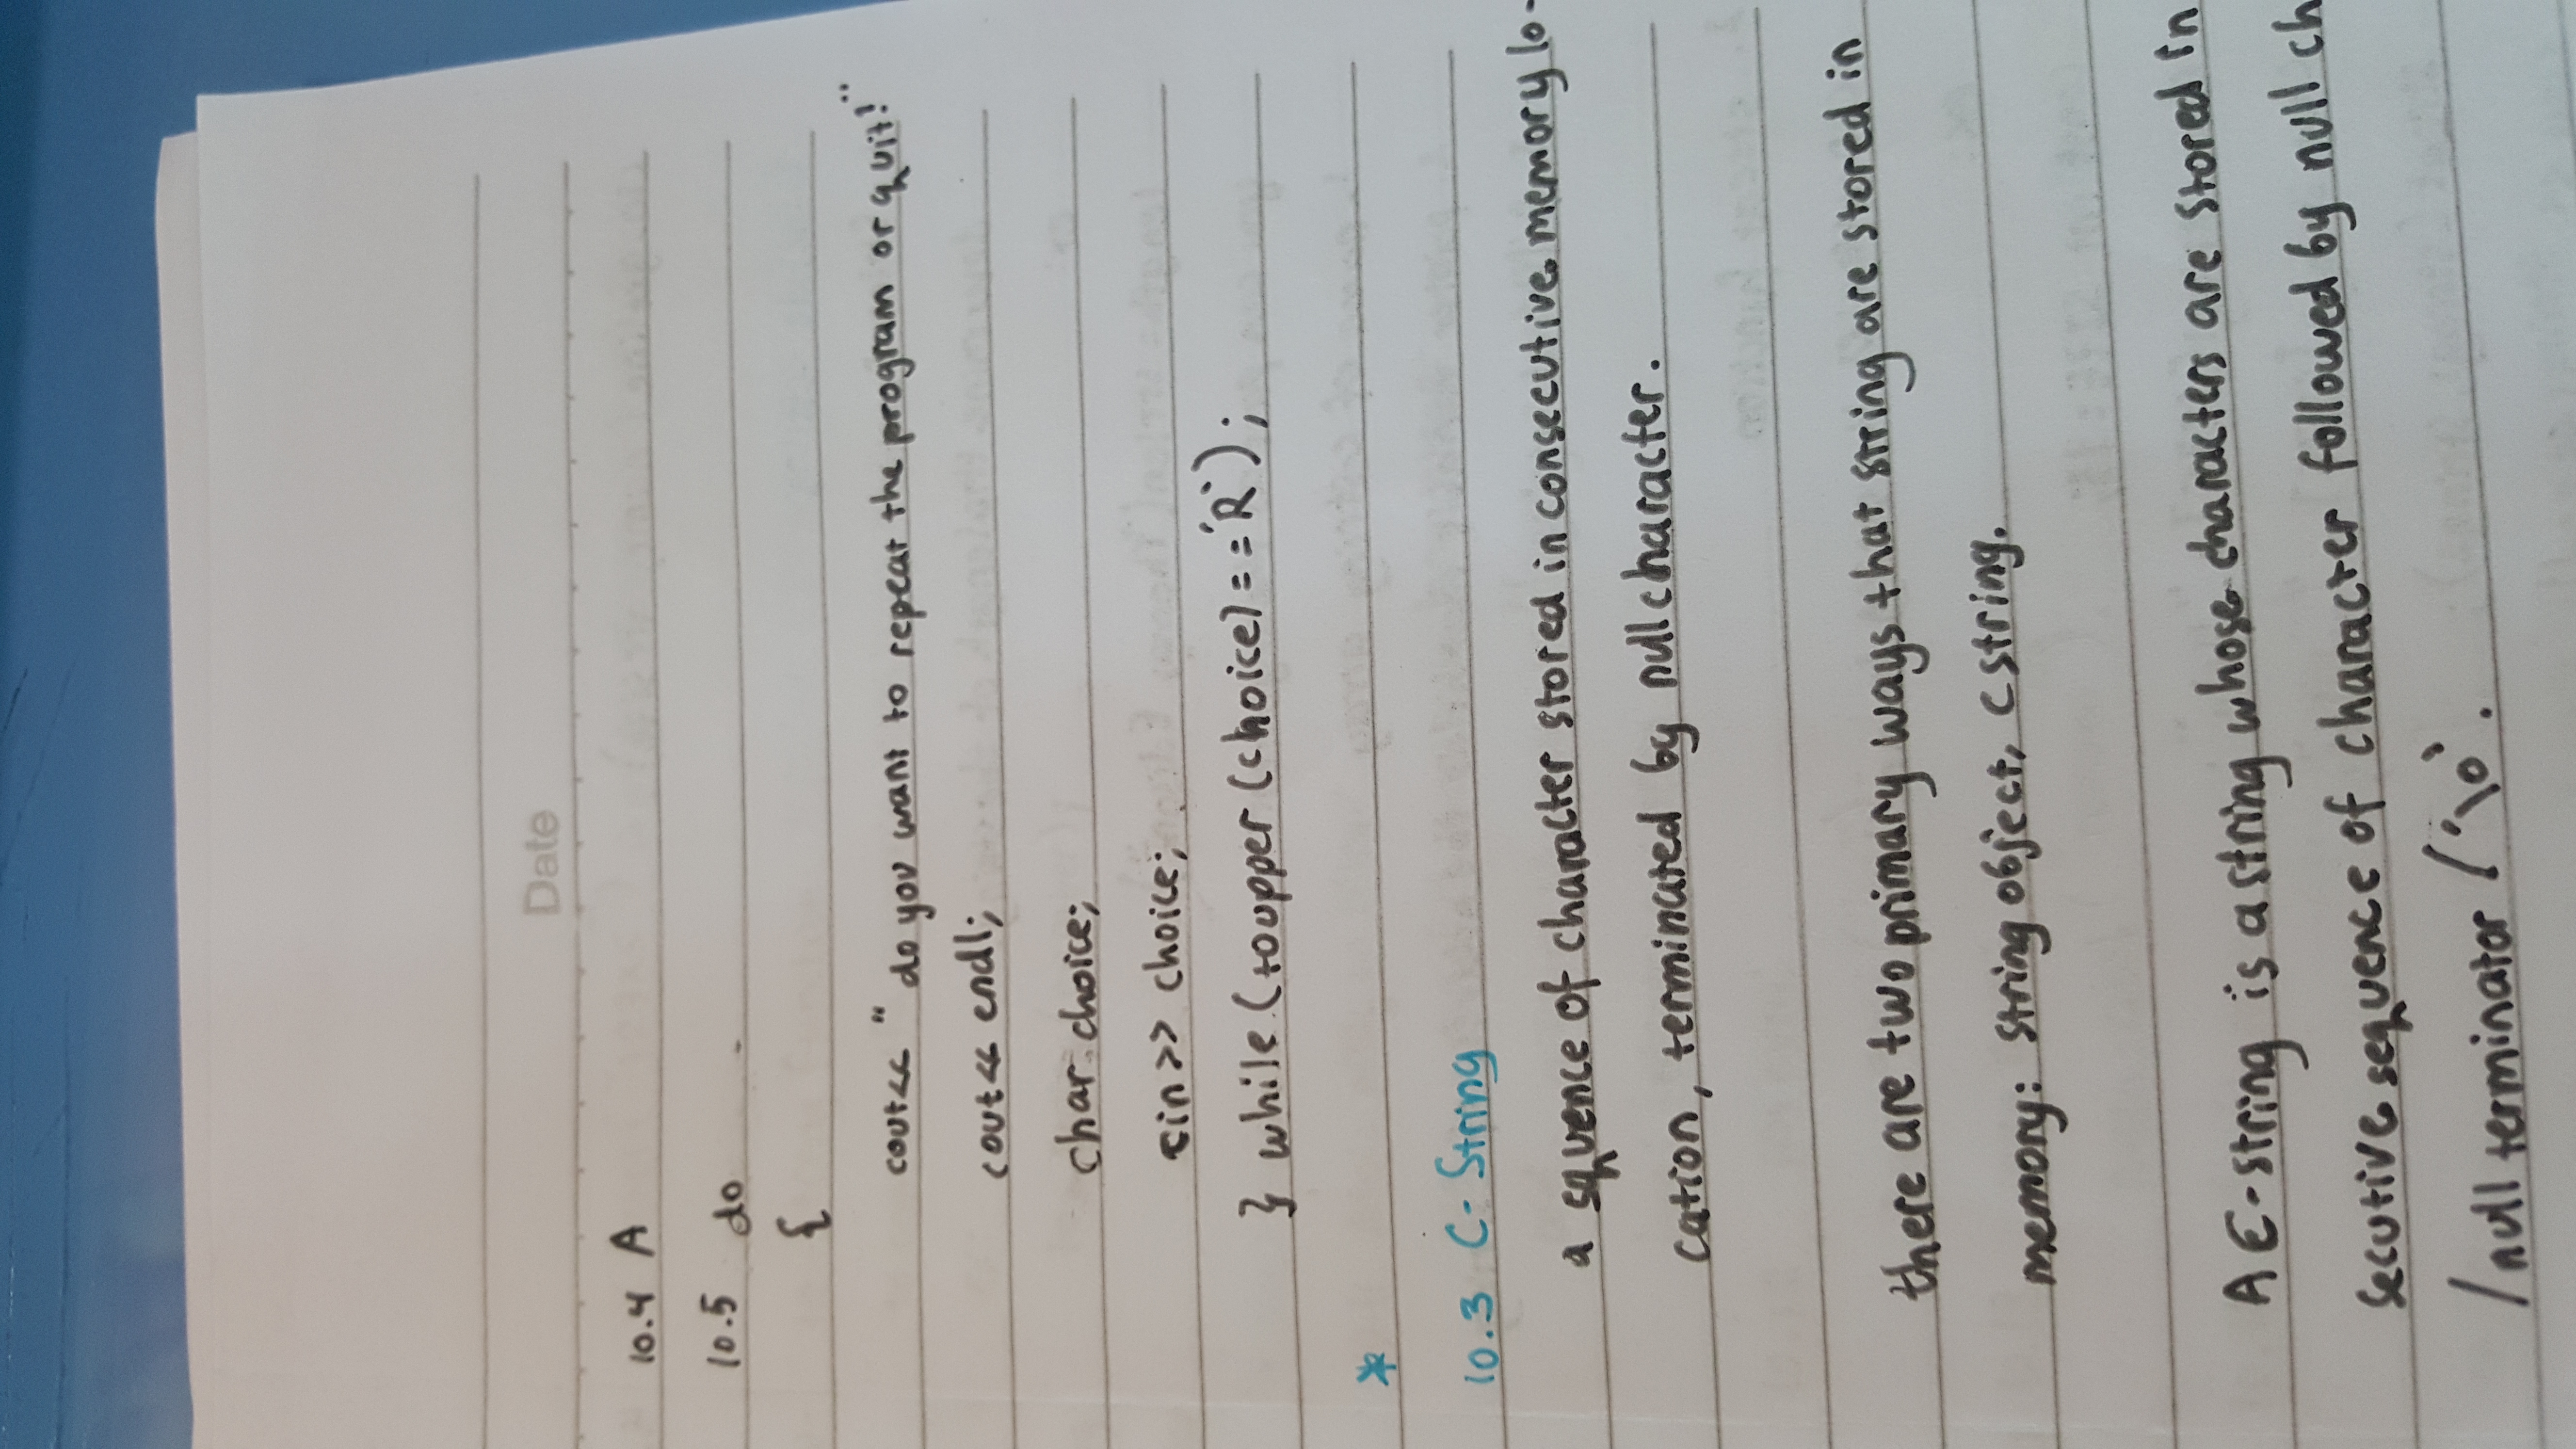 Date
10.4 A
10.5 do
{
cout<< "do you want to repeat the program or quit!"
cout<< endl;
char choice;
cin>> choice;
} while (toupper (choice) == 'R');
*
10.3 C-String
a squence of character stored in consecutive memory lo-
cation, terminated by null character.
there are two primary ways that string are stored in
memory: string object, cstring.
A C-string is a string whose characters are stored in
secutive sequence of character followed by null ch
/null terminator / '\0'.